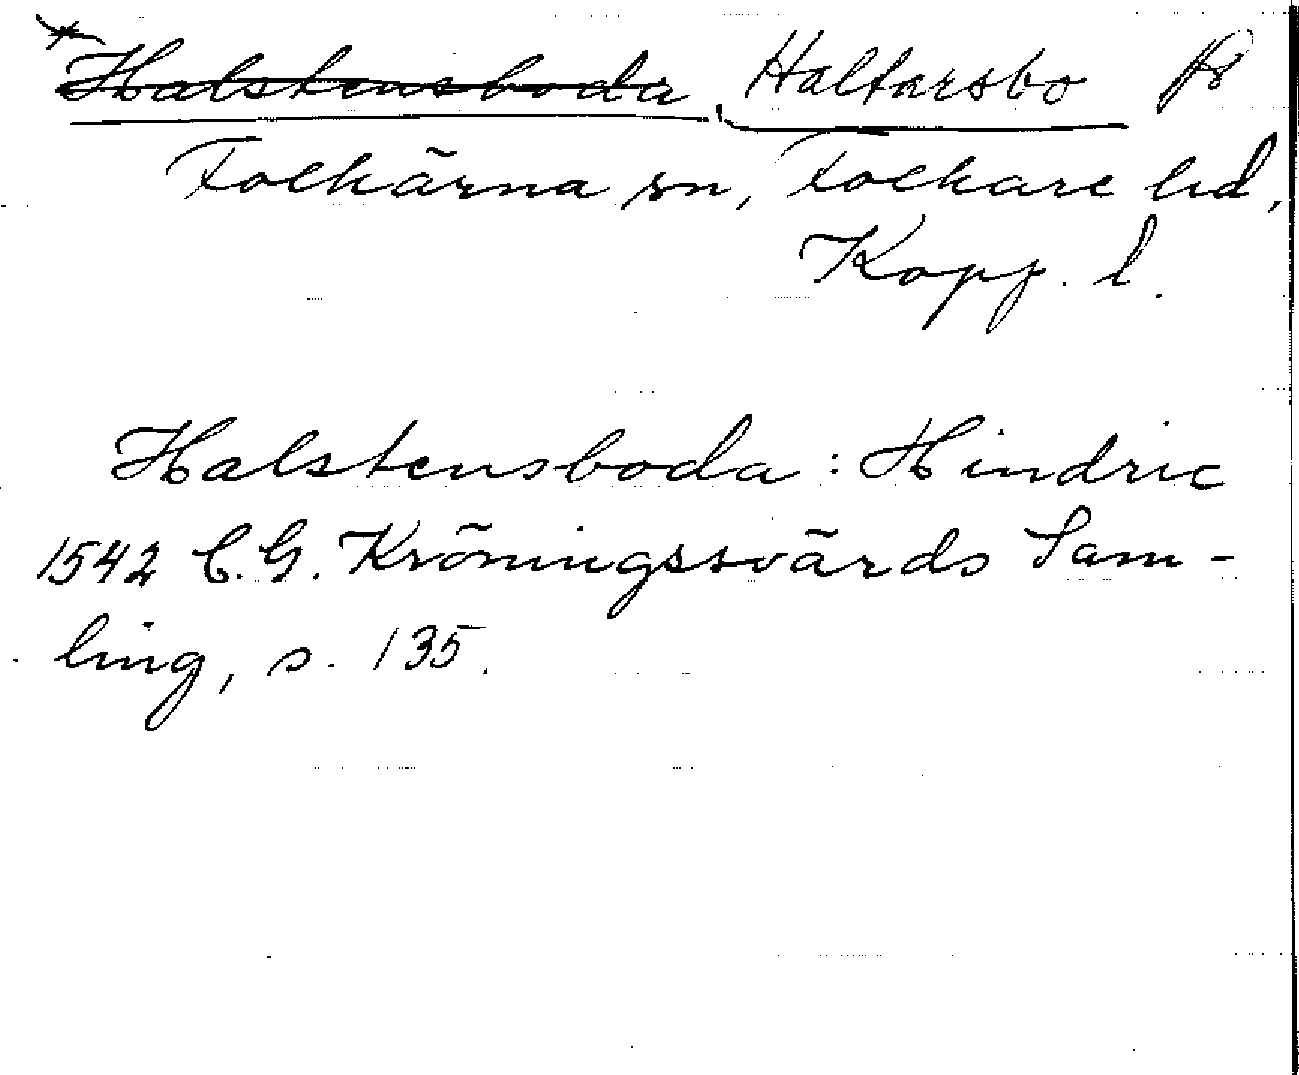 Halstensboda, Haltarsbo
Folkärna sn, Folkare hd,
Kopp. l.
Halstensboda: Hindric
1542 C.G. Kröningssvärds Sam-
ling, s. 135.